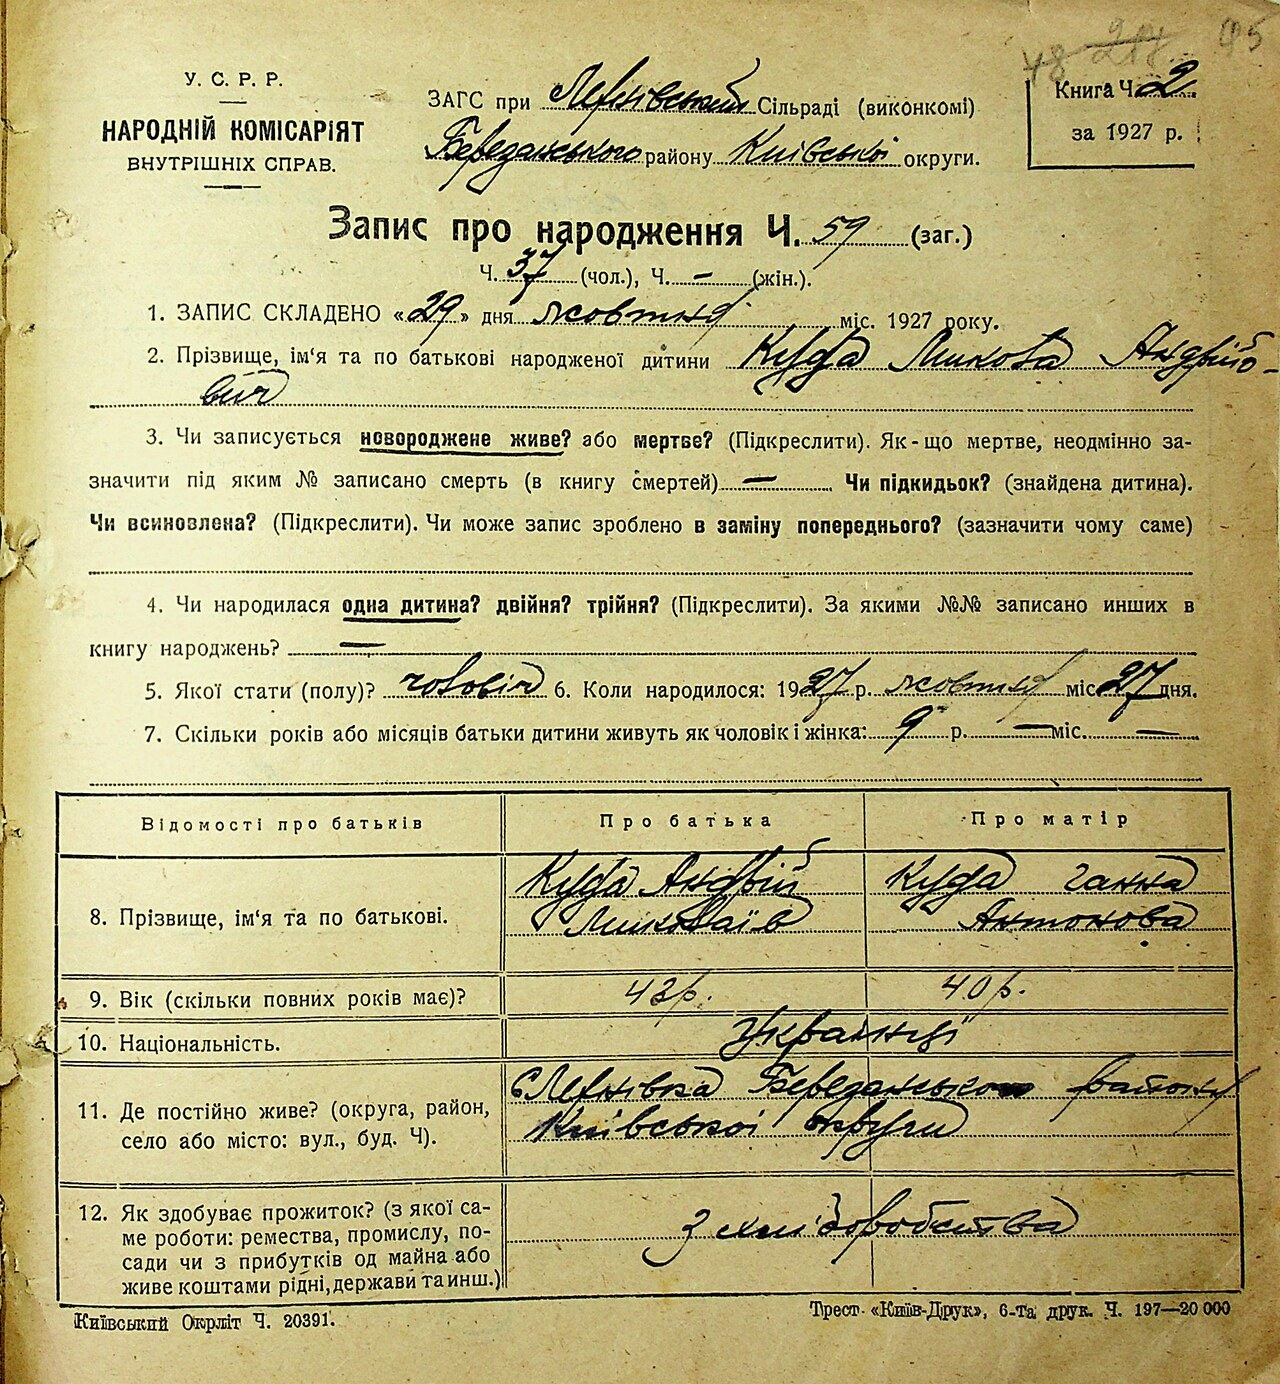 48 217. 95
У. С. Р. Р.
НАРОДНІЙ КОМІСАРІЯТ
ВНУТРІШНІХ СПРАВ.
ЗАГС при Лехнівський Сільраді (виконкомі)
Березанського району Київської округи.
Книга Ч. 2
за 1927 р.
Запис про народження Ч. 59 (заг.)
Ч. 37 (чол.), Ч. — (жін.).
1. ЗАПИС СКЛАДЕНО «29» дня жовтня міс. 1927 року.
2. Прізвище, ім'я та по батькові народженої дитини Микола Андрійо-
вич
3. Чи записується новороджене живе? або мертве? (Підкреслити). Як-що мертве, неодмінно за-
значити під яким № записано смерть (в книгу смертей) — Чи підкидьок? (знайдена дитина).
Чи всиновлена? (Підкреслити). Чи може запис зроблено в заміну попереднього? (зазначити чому саме)
4. Чи народилася одна дитина? двійня? трійня? (Підкреслити). За якими №№ записано инших в
книгу народжень? —
5. Якої стати (полу)? чоловіч 6. Коли народилося: 1927 р. жовтня міс. 27 дня.
7. Скільки років або місяців батьки дитини живуть як чоловік і жінка: 9 р. — міс. —
Відомості про батьків Про батька Про матір
8. Прізвище, ім'я та по батькові. Андрій Миколаїв Ганна Антонова
9. Вік (скільки повних років має)? 43 р. 40 р.
10. Національність. Українці
11. Де постійно живе? (округа, район, с Лехнівка Березанського району
село або місто: вул., буд. Ч). Київської округи
12. Як здобуває прожиток? (з якої са-
ме роботи: ремества, промислу, по- З хліборобства
сади чи з прибутків од майна або
живе коштами рідні, держави та инш.)
Київський Окрліт Ч. 20391.
Трест «Київ-Друк», 6-та друк. Ч. 197—20 000